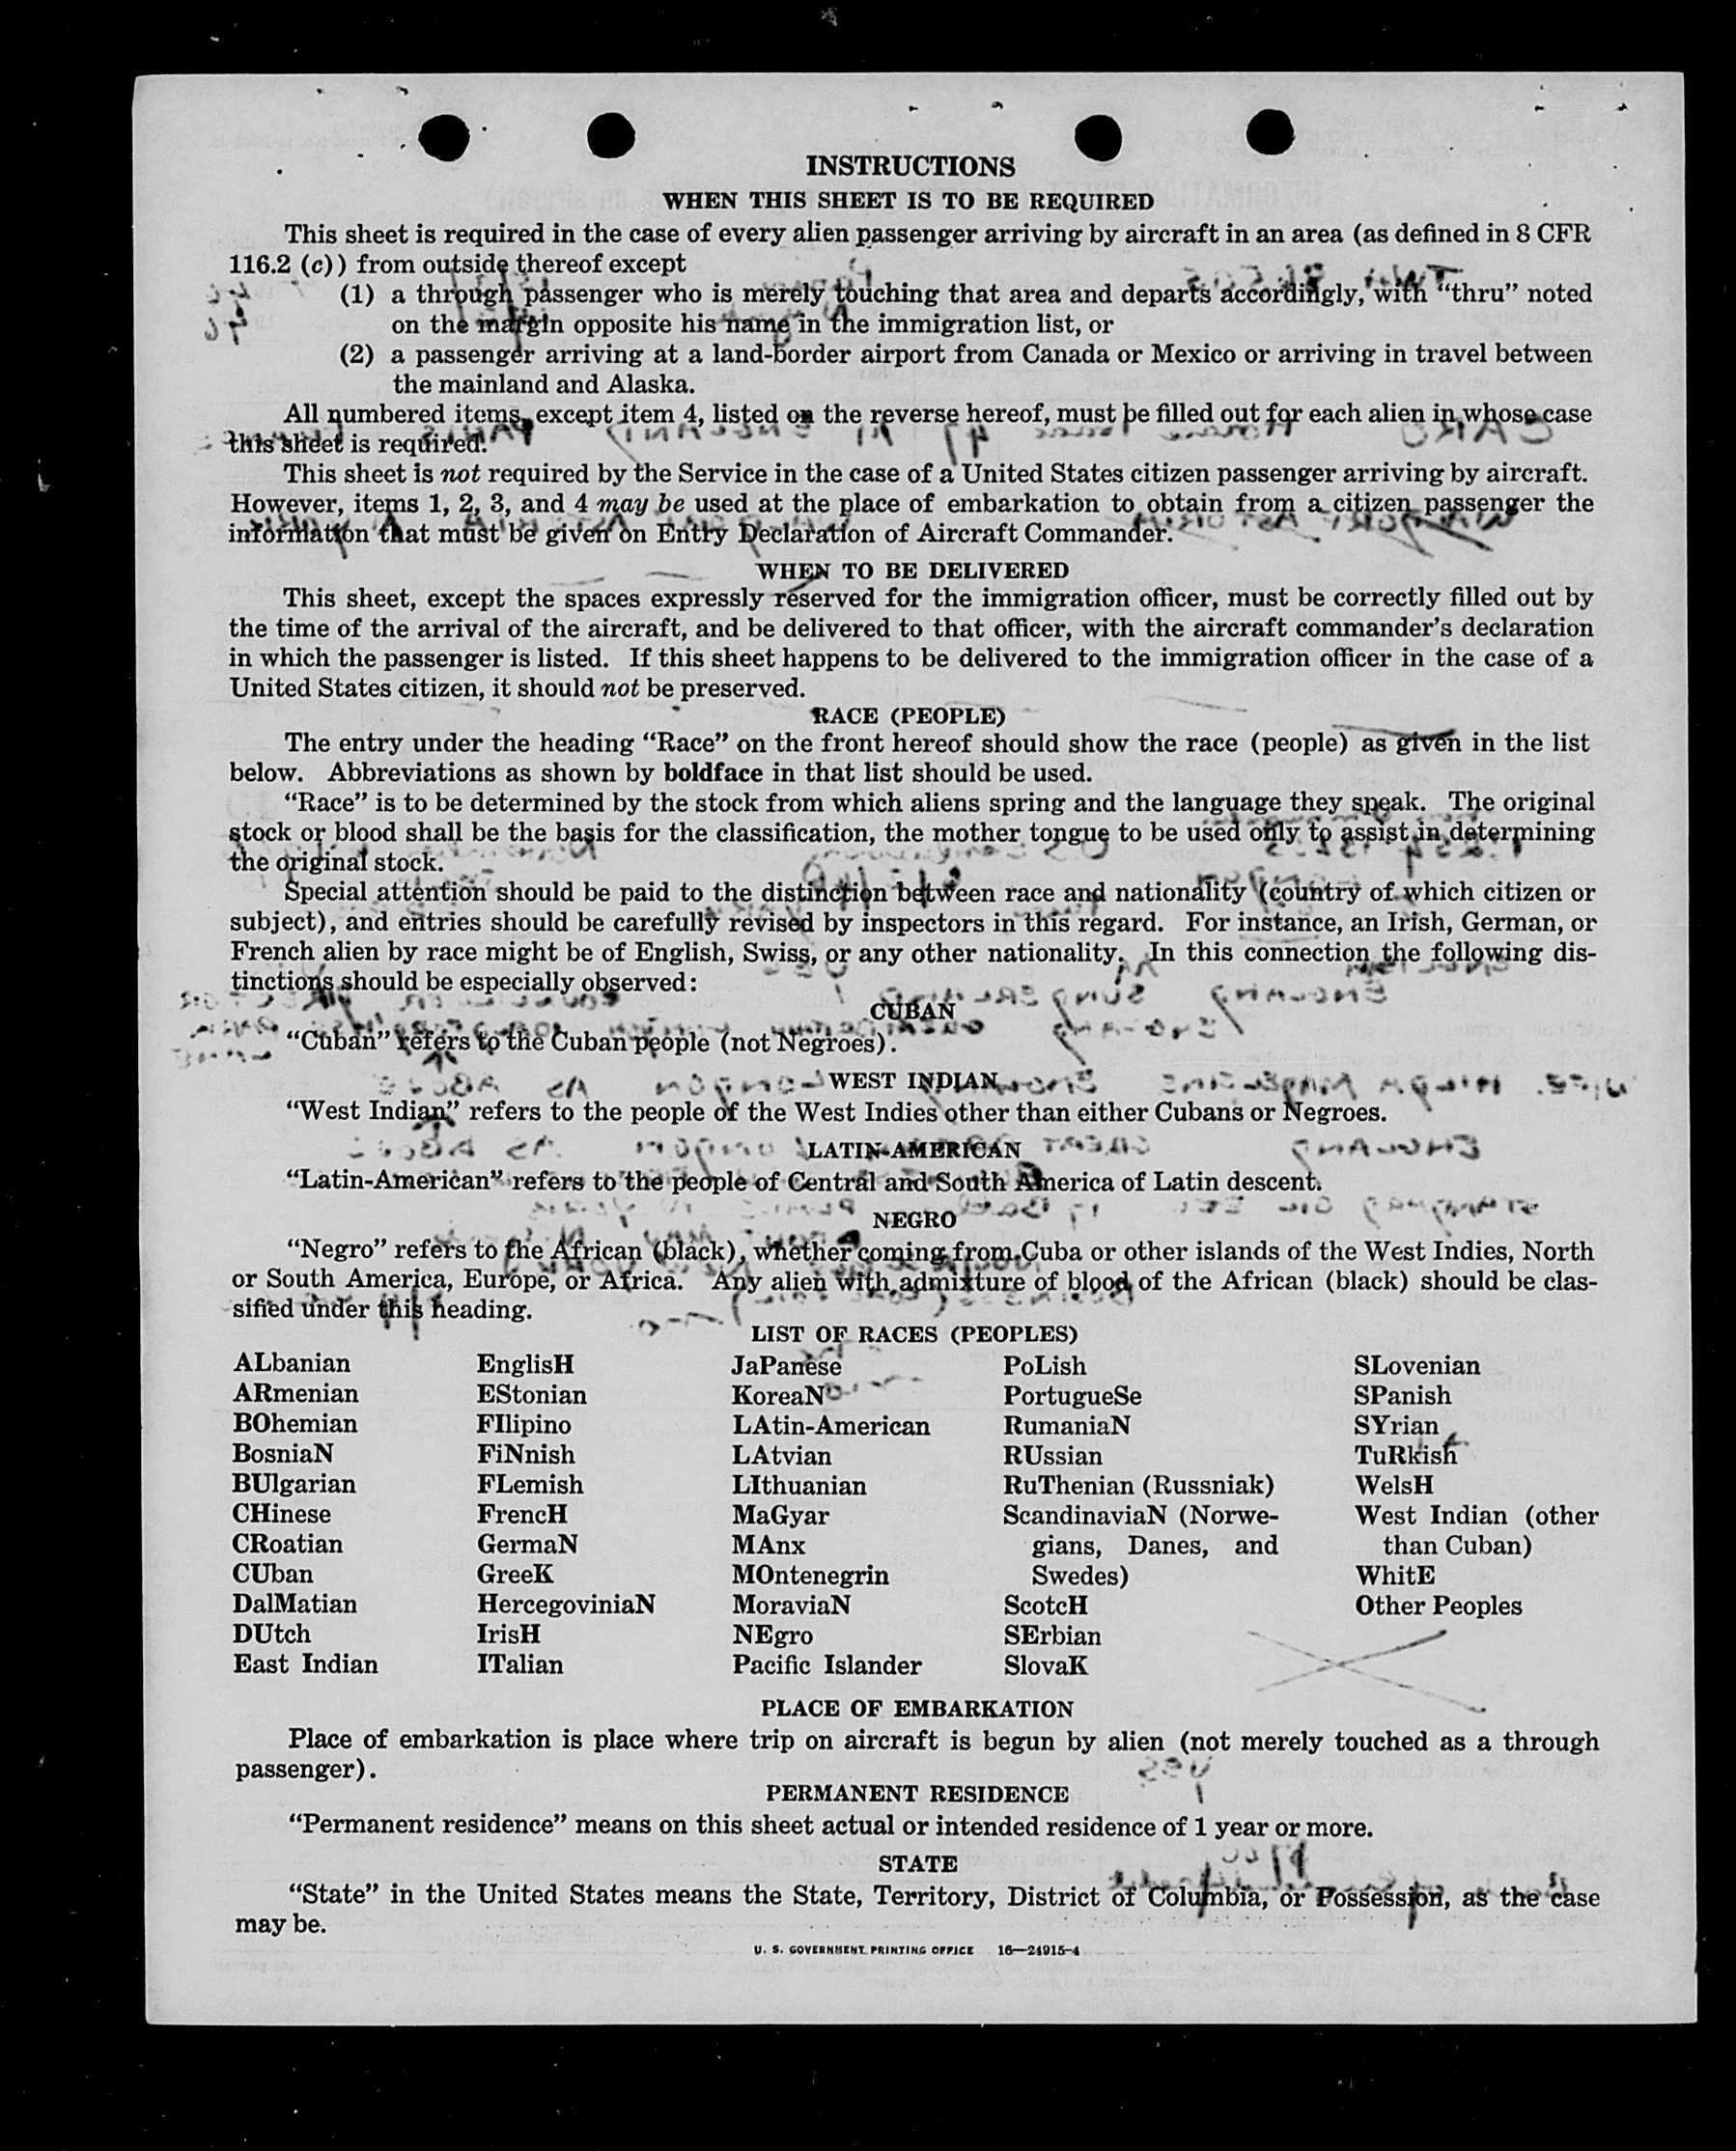 INSTRUCTIONS
WHEN THIS SHEET IS TO BE REQUIRED
This sheet is required in the case of every alien passenger arriving by aircraft in an area (as defined in 8 CFR
116.2 (c)) from outside thereof except
(1) a through passenger who is merely touching that area and departs accordingly, with “thru” noted
on the margin opposite his name in the immigration list, or
(2) a passenger arriving at a land-border airport from Canada or Mexico or arriving in travel between
the mainland and Alaska.
All numbered items, except item 4, listed on the reverse hereof, must be filled out for each alien in whose case
this sheet is required.
This sheet is not required by the Service in the case of a United States citizen passenger arriving by aircraft.
However, items 1, 2, 3, and 4 may be used at the place of embarkation to obtain from a citizen passenger the
information that must be given on Entry Declaration of Aircraft Commander.
WHEN TO BE DELIVERED
This sheet, except the spaces expressly reserved for the immigration officer, must be correctly filled out by
the time of the arrival of the aircraft, and be delivered to that officer, with the aircraft commander’s declaration
in which the passenger is listed. If this sheet happens to be delivered to the immigration officer in the case of a
United States citizen, it should not be preserved.
RACE (PEOPLE)
The entry under the heading “Race” on the front hereof should show the race (people) as given in the list
below. Abbreviations as shown by boldface in that list should be used.
“Race” is to be determined by the stock from which aliens spring and the language they speak. The original
stock or blood shall be the basis for the classification, the mother tongue to be used only to assist in determining
the original stock.
Special attention should be paid to the distinction between race and nationality (country of which citizen or
subject), and entries should be carefully revised by inspectors in this regard. For instance, an Irish, German, or
French alien by race might be of English, Swiss, or any other nationality. In this connection the following dis-
tinctions should be especially observed:
CUBAN
“Cuban” refers to the Cuban people (not Negroes).
WEST INDIAN
“West Indian” refers to the people of the West Indies other than either Cubans or Negroes.
LATIN-AMERICAN
“Latin-American” refers to the people of Central and South America of Latin descent.
NEGRO
“Negro” refers to the African (black), whether coming from Cuba or other islands of the West Indies, North
or South America, Europe, or Africa. Any alien with admixture of blood of the African (black) should be clas-
sified under this heading.
LIST OF RACES (PEOPLES)
ALbanian EnglisH JaPanese PoLish SLovenian
ARmenian EStonian KoreaN PortugueSe SPanish
BOhemian FIlipino LAtin-American RumaniaN SYrian
BosniaN FiNnish LAtvian RUssian TuRkish
BUlgarian FLemish LIthuanian RuThenian (Russniak) WelsH
CHinese FrencH MaGyar ScandinaviaN (Norwe- West Indian (other
CRoatian GermaN MAnx gians, Danes, and than Cuban)
CUban GreeK MOntenegrin Swedes) WhitE
DalMatian HercegoviniaN MoraviaN ScotcH Other Peoples
DUtch IrisH NEgro SErbian
East Indian ITalian Pacific Islander SlovaK
PLACE OF EMBARKATION
Place of embarkation is place where trip on aircraft is begun by alien (not merely touched as a through
passenger).
PERMANENT RESIDENCE
“Permanent residence” means on this sheet actual or intended residence of 1 year or more.
STATE
“State” in the United States means the State, Territory, District of Columbia, or Possession, as the case
may be.
U. S. GOVERNMENT PRINTING OFFICE 16—24915-4